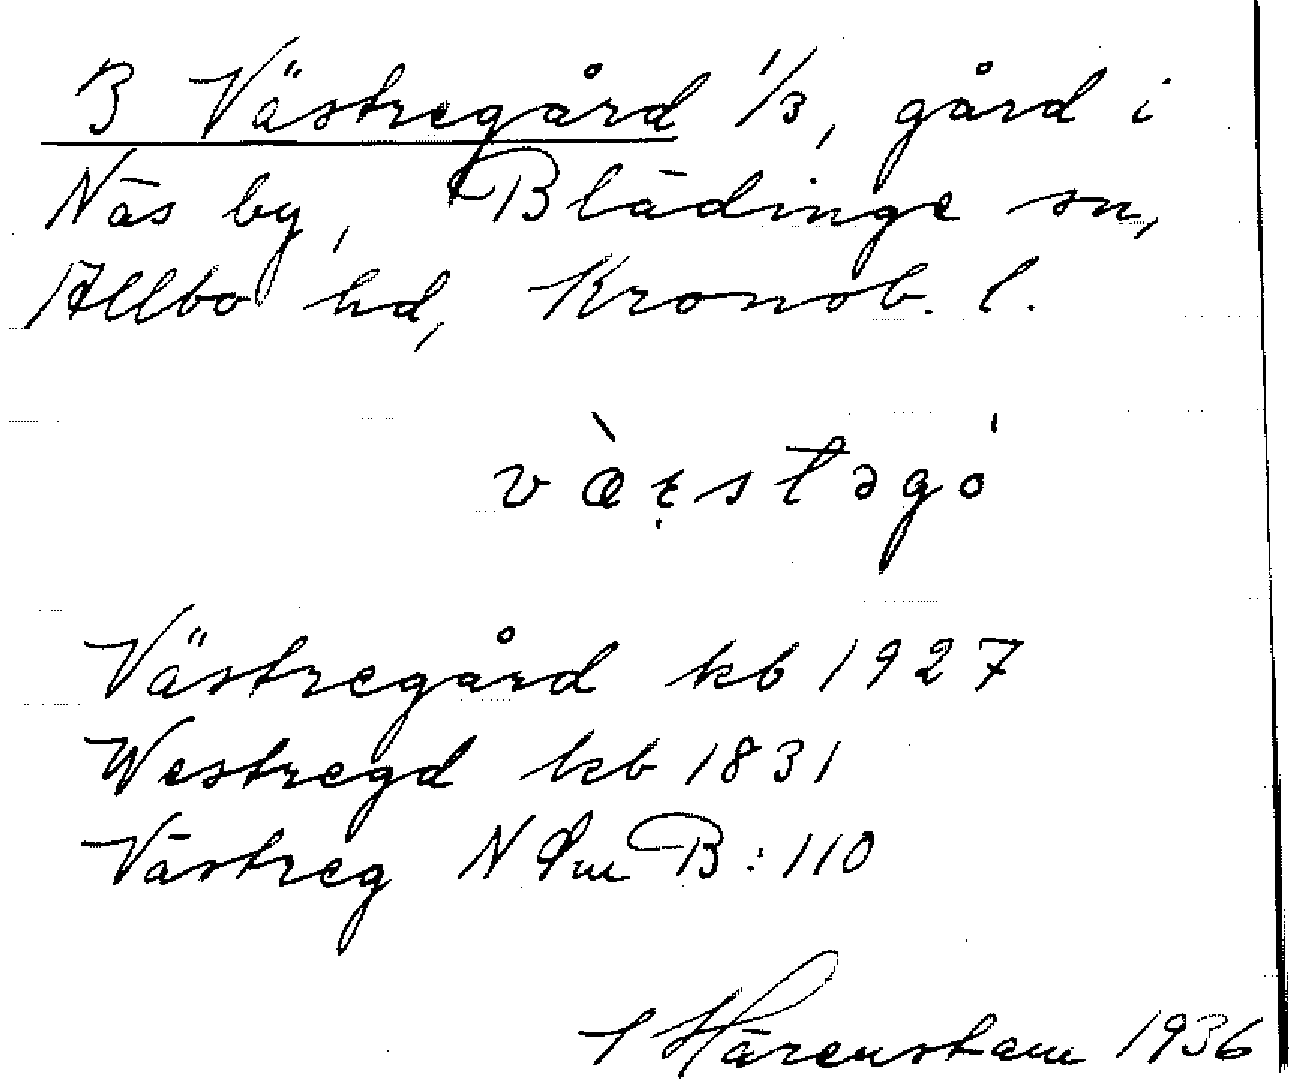 B Västregård 1/3, gård i
Näs by, Blädinge sn,
Allbo hd, Kronob. l.
Västregård kb 1927
Westregd kb 1831
Västreg N Lm B:110
Härenstam 1936